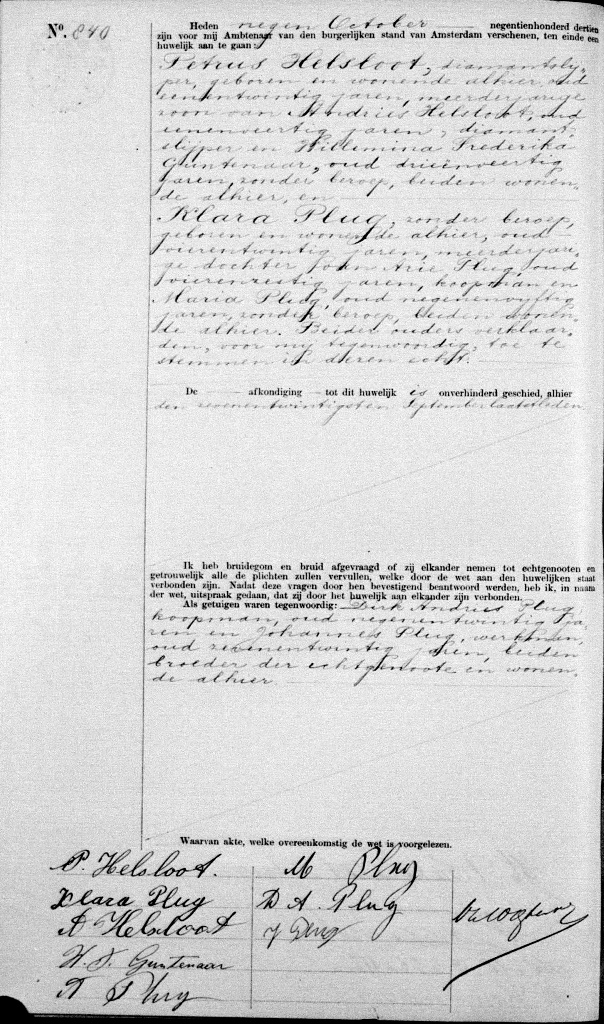 Nº. 840
Heden negen October negentienhonderd dertien
zijn voor mij Ambtenaar van den burgerlijken stand van Amsterdam verschenen, ten einde een
huwelijk aan te gaan:
Petrus Helsloot, diamantslij-
per, geboren en wonende alhier, oud
eenentwintig jaren, meerderjarige
zoon van Andries Helsloot, oud
eenenveertig jaren, diamant-
slijper en Willemina Frederika
Guntenaar, oud drieënveertig
jaren, zonder beroep, beiden wonen-
de alhier, en
Klara Plug, zonder beroep,
geboren en wonende alhier, oud
vierentwintig jaren, meerderjari-
ge dochter van Arie Plug, oud
vierenzestig jaren, koopman en
Maria Plug, oud negenenvijftig
jaren, zonder beroep, beiden wonen-
de alhier. Beider ouders verklaar-
den, voor mij tegenwoordig, toe te
stemmen in dezen echt.
De afkondiging tot dit huwelijk is onverhinderd geschied, alhier
den zevenentwintigsten September laatstleden
Ik heb bruidegom en bruid afgevraagd of zij elkander nemen tot echtgenooten en
getrouwelijk alle de plichten zullen vervullen, welke door de wet aan den huwelijken staat
verbonden zijn. Nadat deze vragen door hen bevestigend beantwoord werden, heb ik, in naam
der wet, uitspraak gedaan, dat zij door het huwelijk aan elkander zijn verbonden.
Als getuigen waren tegenwoordig: Dirk Andries Plug,
koopman, oud negenentwintig ja-
ren en Johannes Plug, werkman,
oud zevenentwintig jaren, beiden
broeder der echtgenoote en wonen-
de alhier.
Waarvan akte, welke overeenkomstig de wet is voorgelezen.
P. Helsloot. M Plug
Klara Plug D. A. Plug
A Helsloot J Plug
W. F. Guntenaar
A Plug